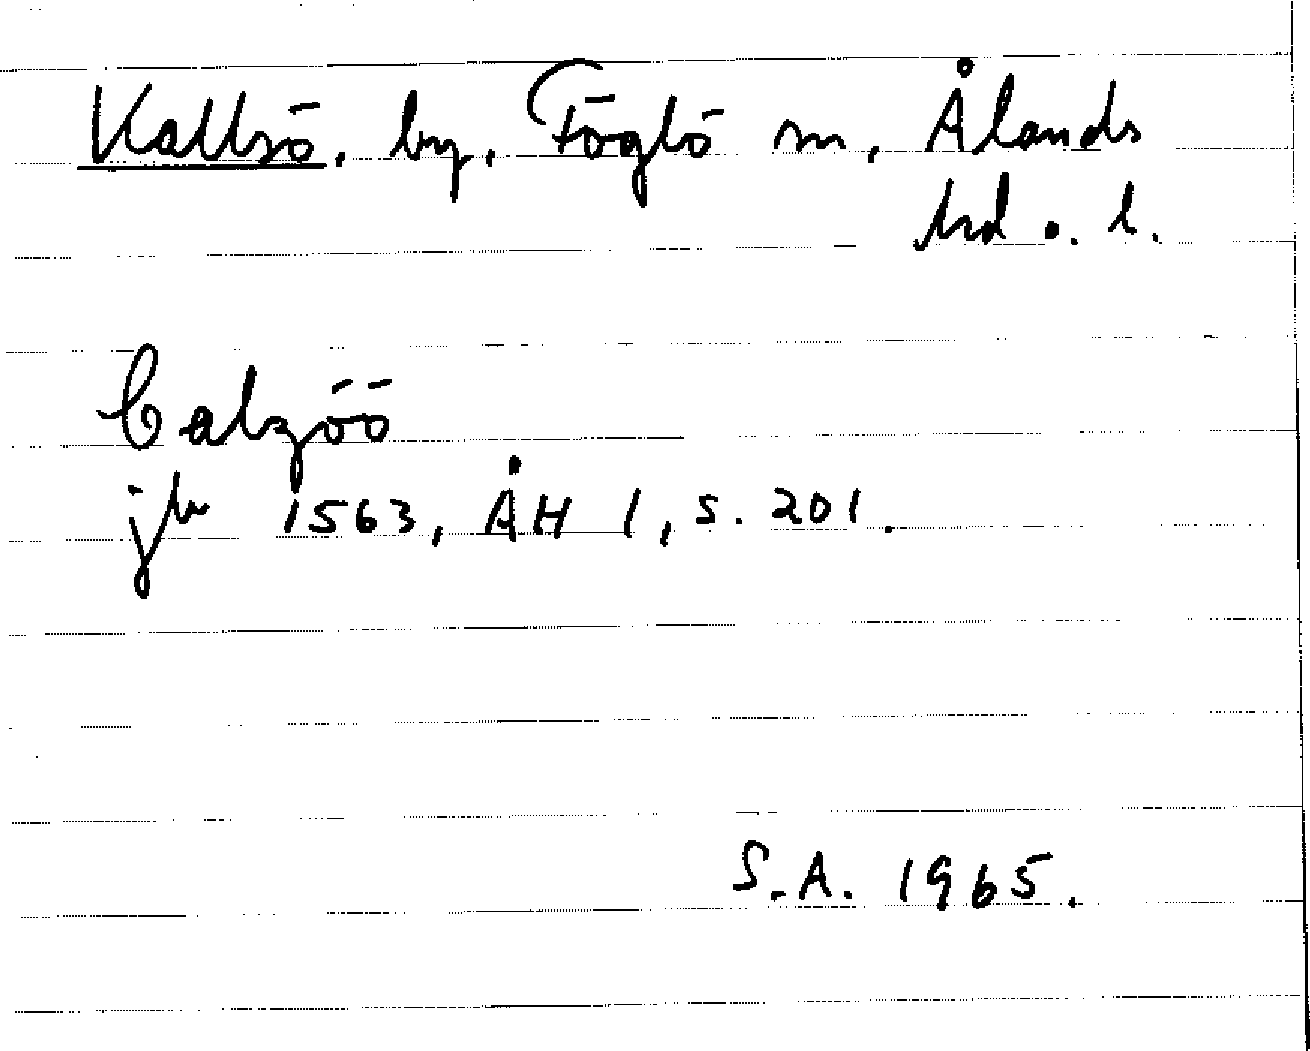 Kallsö, by, Föglö sn, Ålands
hd o. l.
Calzöö
jb 1563, ÅH 1, s. 201.
S.A. 1965.